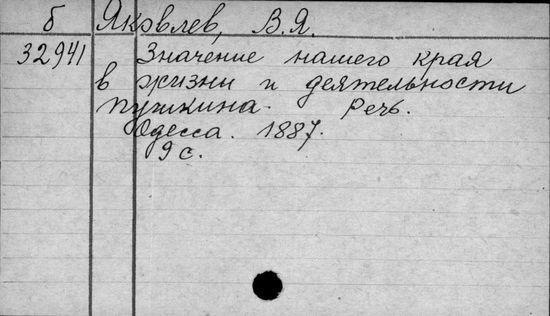 б Яковлев, В.Я.
32941 Значение нашего края
в жизни и деятельности
Пушкина. Речь.
Одесса. 1887.
9 с.